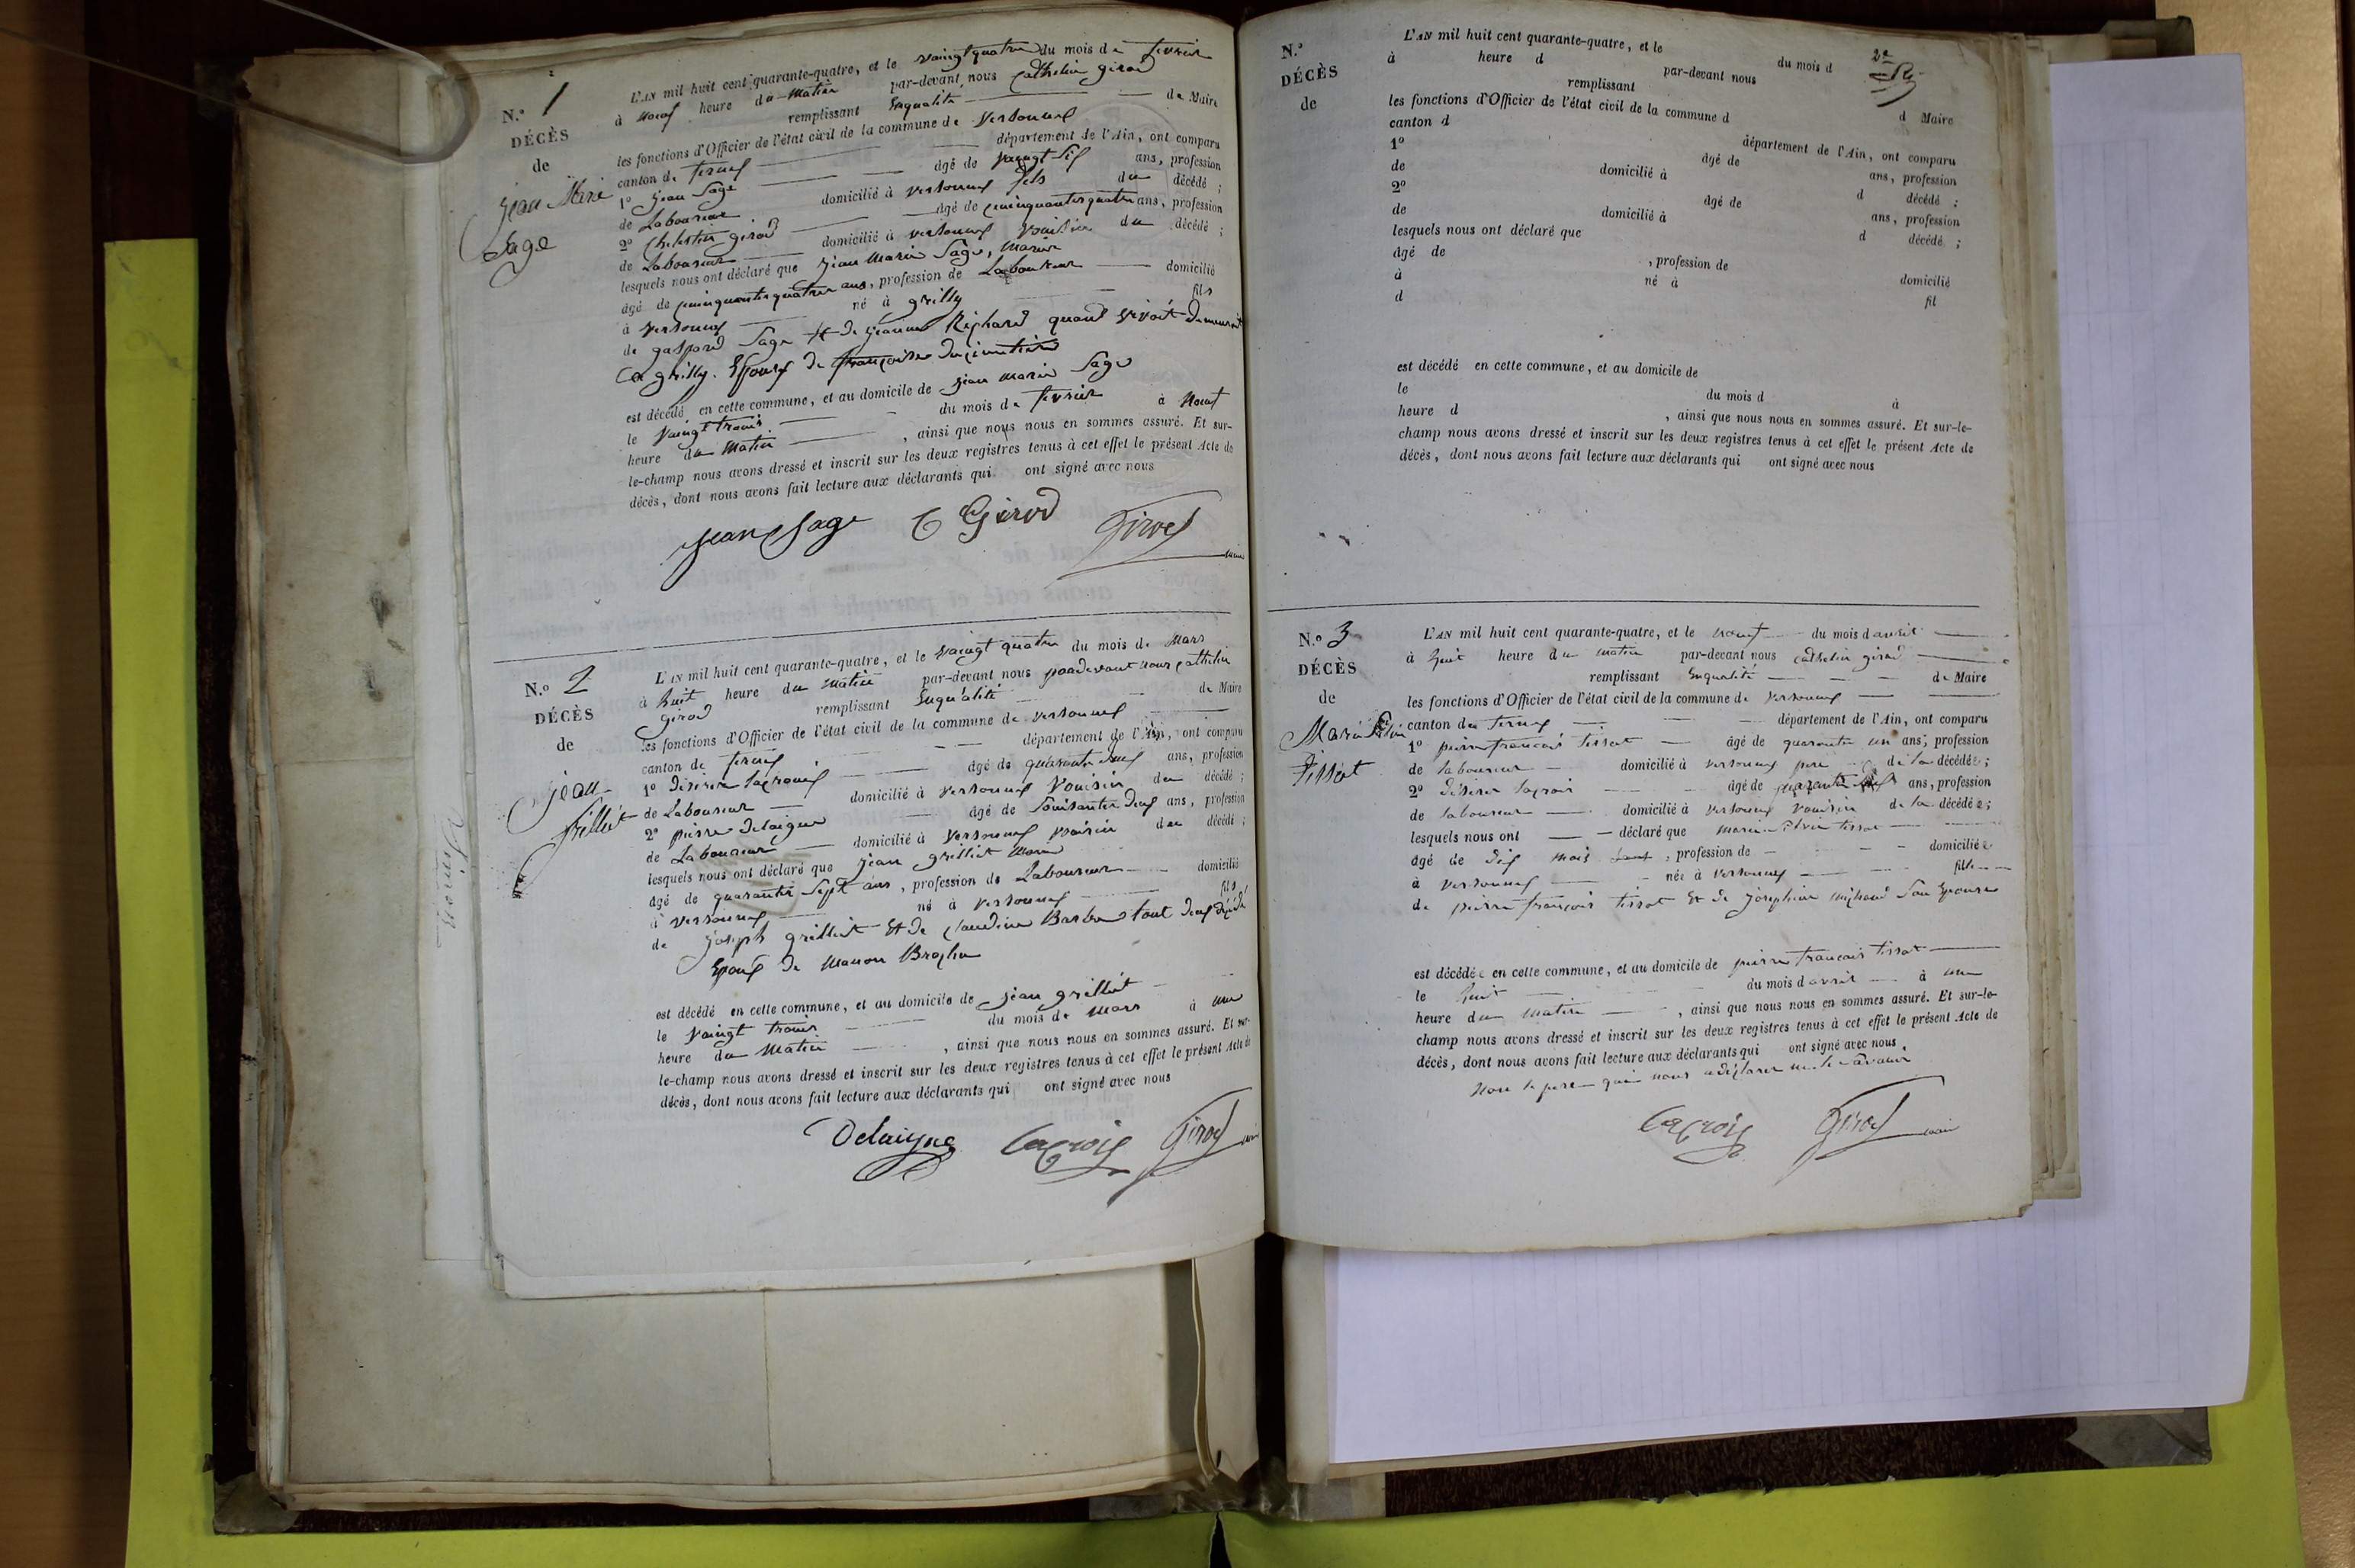 N.° 1
DÉCÈS
de
jean Marie
Sage
L'AN mil huit cent quarante-quatre, et le vaingt quatre du mois de fevrier
à nouf heure du Matin par-devant nous Cathelin girod
remplissant Enqualité de Maire
les fonctions d'Officier de l'état civil de la commune de Versonnex
canton de fernex département de l'Ain, ont comparu
1° jean Sage âgé de vaingt Six ans, profession
de Laboureur domicilié à versonnex fils du décédé ;
2° girod âgé de cinquantesquatre ans, profession
de Laboureur domicilié à versonnex voisin du décédé ;
lesquels nous ont déclaré que jean Marie Sage, Marier
âgé de cinquantesquatre ans, profession de Laboureur domicilié
à versonnex né à grilly fils
de gaspard Sage Et de jeanne Richard quand vivoit demeurant
a grilly. Epoux de françoise
est décédé en cette commune, et au domicile de jean marie Sage
le vaingt trois du mois de fevrier à nouf
heure du Matin , ainsi que nous nous en sommes assuré. Et sur-
le-champ nous avons dressé et inscrit sur les deux registres tenus à cet effet le présent Acte de
décès, dont nous avons fait lecture aux déclarants qui ont signé avec nous
jean Sage C Girod Girod maire
N.° 2
DÉCÈS
de
jean
grilliet
L'AN mil huit cent quarante-quatre, et le vaingt quatre du mois de Mars
à huit heure du Matin par-devant nous pardevant nous Cathelin
girod remplissant Enqualité de Maire
les fonctions d'Officier de l'état civil de la commune de versonnex
canton de fernex département de l'Ain, ont comparu
1° désirer lacroix âgé de quarante deux ans, profession
de Laboureur domicilié à versonnex voisin du décédé ;
2° pierre delaigue âgé de Soisante deux ans, profession
de Laboureur domicilié à versonnex voisin du décédé ;
lesquels nous ont déclaré que jean grilliet Marié
âgé de quarante Sept ans, profession de Laboureur domicilié
à versonnex né à versonnex fils
de joseph grilliet Et de Claudine Barbe tout deux décédé
Epoux de Manon
est décédé en cette commune, et au domicile de jean grilliet
le vaingt trois du mois de Mars à une
heure du Matin , ainsi que nous nous en sommes assuré. Et sur-
le-champ nous avons dressé et inscrit sur les deux registres tenus à cet effet le présent Acte de
décès, dont nous avons fait lecture aux déclarants qui ont signé avec nous
Delaigue Lacroix Girod maire
N.°
DÉCÈS
de
2e
L'AN mil huit cent quarante-quatre, et le du mois d
à heure d par-devant nous
remplissant d Maire
les fonctions d'Officier de l'état civil de la commune d
canton d département de l'Ain, ont comparu
1° âgé de ans, profession
de domicilié à d décédé ;
2° âgé de ans, profession
de domicilié à d décédé ;
lesquels nous ont déclaré que
âgé de , profession de domicilié
à né à fil
d
est décédé en cette commune, et au domicile de
le du mois d à
heure d , ainsi que nous nous en sommes assuré. Et sur-le-
champ nous avons dressé et inscrit sur les deux registres tenus à cet effet le présent Acte de
décès, dont nous avons fait lecture aux déclarants qui ont signé avec nous
N.° 3
DÉCÈS
de
Marie
Tissot
L'AN mil huit cent quarante-quatre, et le nouf du mois d avril
à huit heure du matin par-devant nous Cathelin girod
remplissant Enqualité de Maire
les fonctions d'Officier de l'état civil de la commune de versonnex
canton de fernex département de l'Ain, ont comparu
1° pierre françois tissot âgé de quarante un ans, profession
de laboureur domicilié à versonnex pere de la décédée ;
2° désirer lacroix âgé de quarante deux ans, profession
de laboureur domicilié à versonnex voisin de la décédée ;
lesquels nous ont déclaré que marie tissot
âgé de dix mois , profession de domiciliée
à versonnex née à versonnex fille
de pierre françois tissot Et de josephine michaud Son Epouse
est décédée en cette commune, et au domicile de pierre francois tissot
le huit du mois d avril à une
heure du matin , ainsi que nous nous en sommes assuré. Et sur-le-
champ nous avons dressé et inscrit sur les deux registres tenus à cet effet le présent Acte de
décès, dont nous avons fait lecture aux déclarants qui ont signé avec nous
Non le pere qui nous a déclarer ne le savoir
Lacroix Girod maire